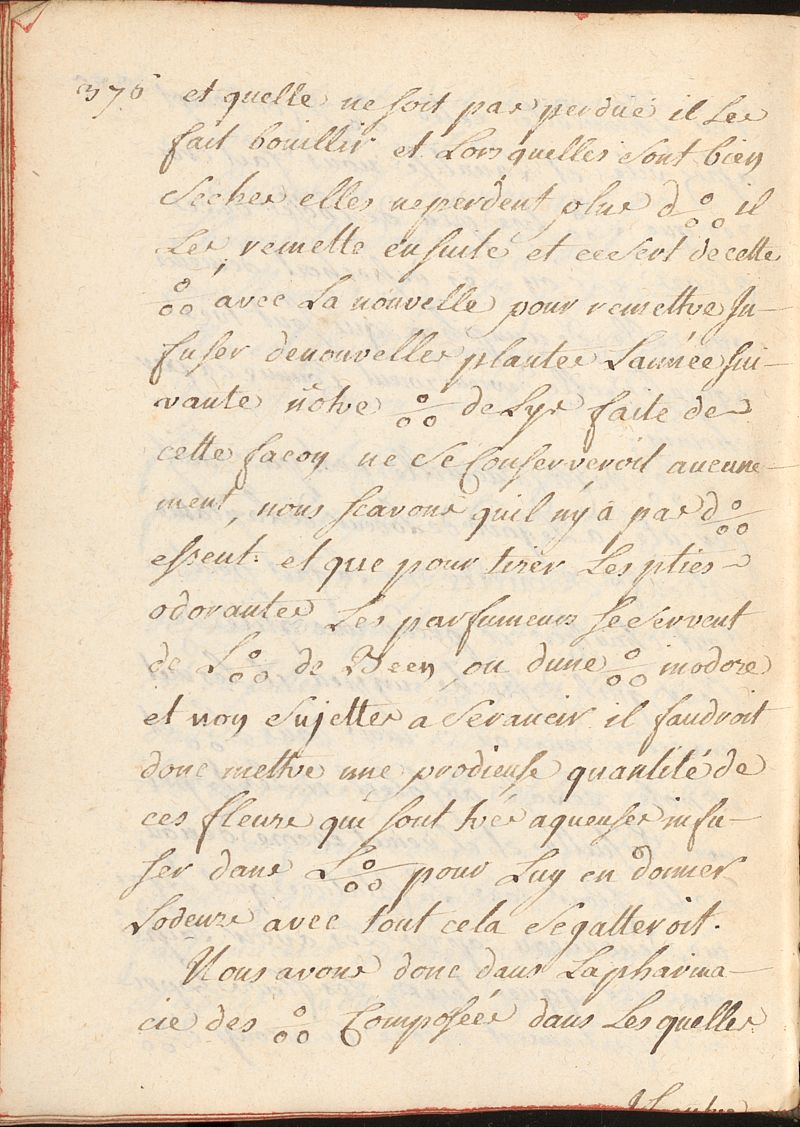 376 et quelle ne soit pas perdue il Les
fait bouillir et Lors quelles sont bien
Seches elles neperdent plus d o/oo il
Les remette ensuite et ce sert decette
o/oo avec La nouvelle pour remettre In-
fuser denouvelles plantes Lannée sui-
vante nôtre o/oo de Lys faite de
cette facon ne Se Conserveroit aucune-
ment, nous scavons quil ny à pas d o/oo
essent: et que pour tirer Les pties
odorantes Les parfumeurs se servent
de L o/oo de Been ou dune o/oo inodore
et non Sujettes a Serancir il faudroit
donc mettre une prodieuse quantité de
ces fleurs qui sont très aqueuses infu-
ser dans L o/oo pour Luy en donner
Lodeure avec tout cela Segatteroit.
Nous avons donc dans Lapharma-
cie des o/oo Composées dans Lesquelles